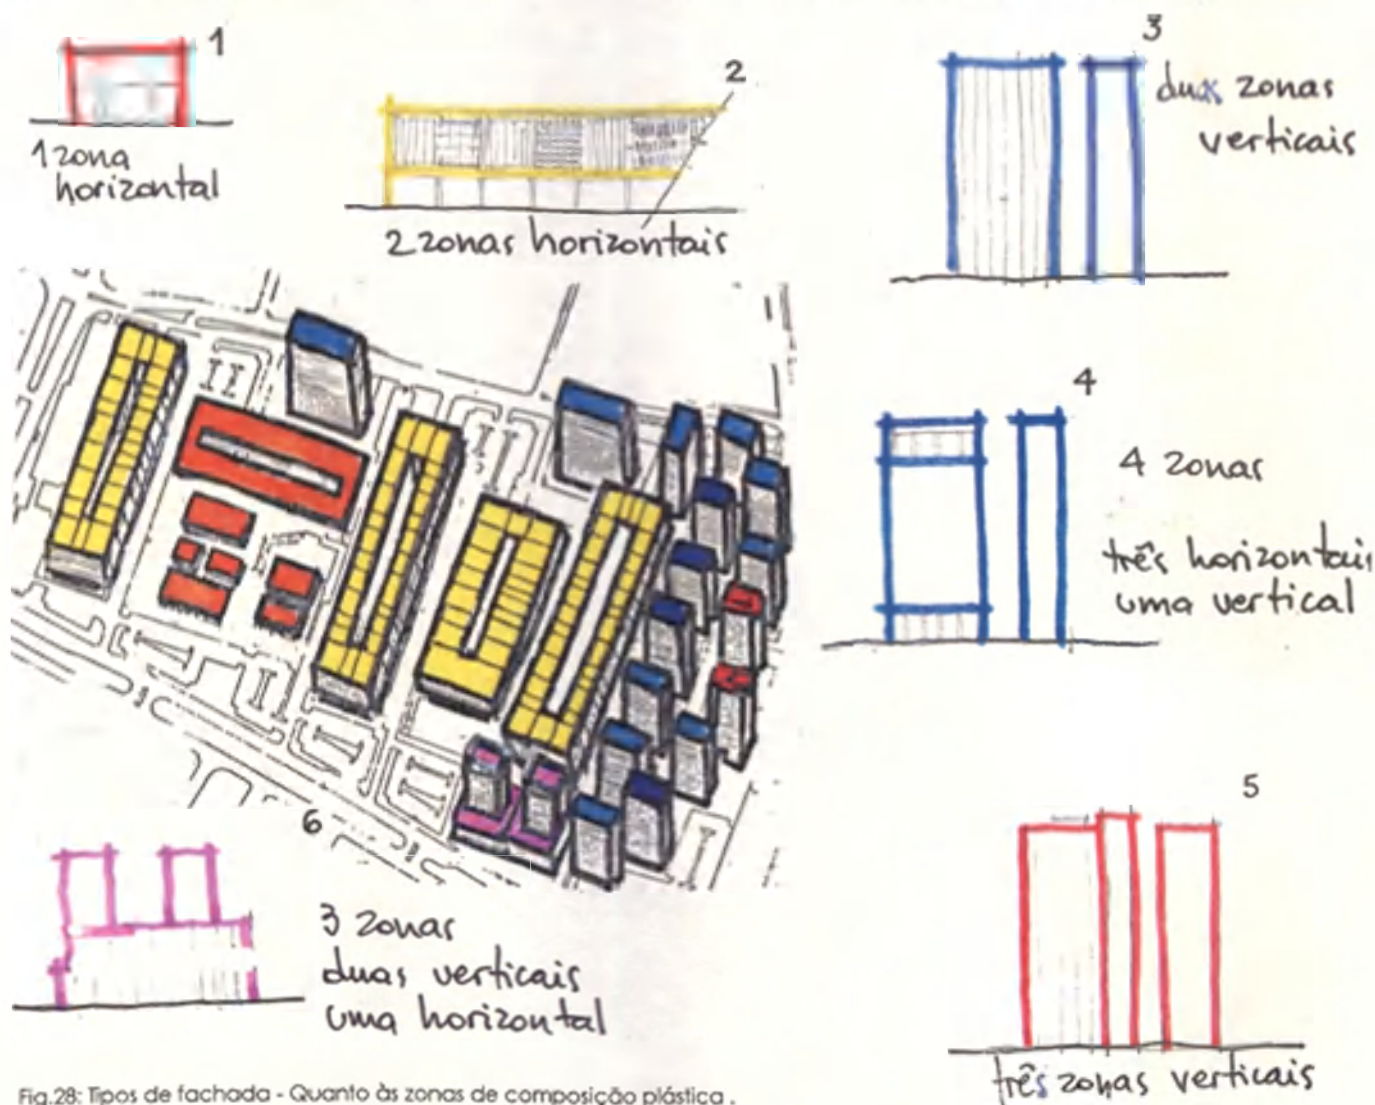 1
1 zona
horizontal
2
2 zonas horizontais
3
duas zonas
verticais
4
4 zonas
três horizontais
uma vertical
5
três zonas verticais
6
3 zonas
duas verticais
uma horizontal
Fig.28: Tipos de fachada - Quanto às zonas de composição plástica .